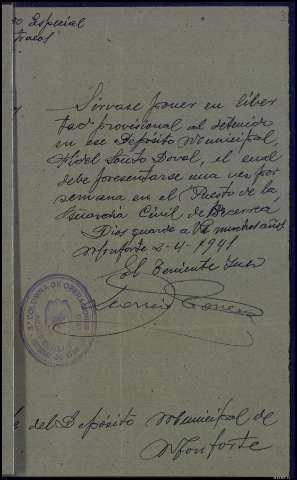 Especial
Sírvase poner en liber
tad provisional al detenido
en ese Depósito Municipal,
Abdel Souto Doval, el cual
debe presentarse una vez por
semana en el Puesto de la
Guardia Civil de Becerrea
Dios guarde a Vd muchos años
Monforte 2-4-1941
El Teniente Juez
COLUMNA DE OPERACIONES
del Depósito Municipal de
Monforte